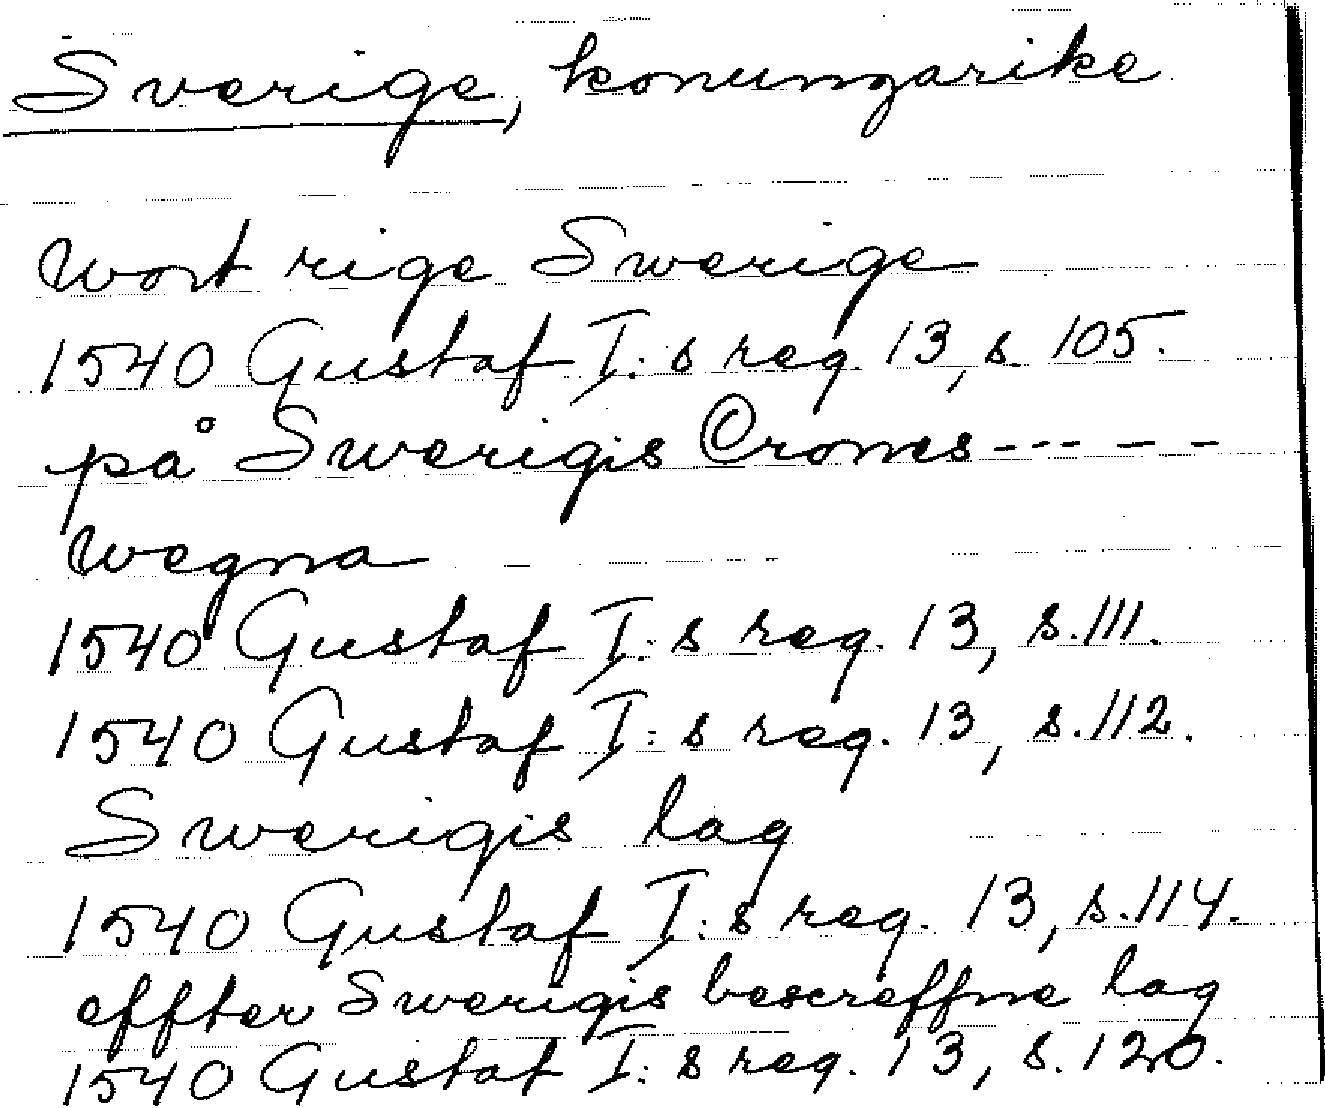 Sverige, konungarike
wort rige Swerige
1540 Gustaf I:s reg. 13, s. 105.
på Swerigis Crones-----
wegna
1540 Gustaf I:s reg. 13, s. 111.
1540 Gustaf I:s reg. 13, s. 112.
Swerigis lag
1540 Gustaf I:s reg. 13, s. 114.
effter Swerigis bescreffne lag
1540 Gustaf I:s reg. 13, s. 120.